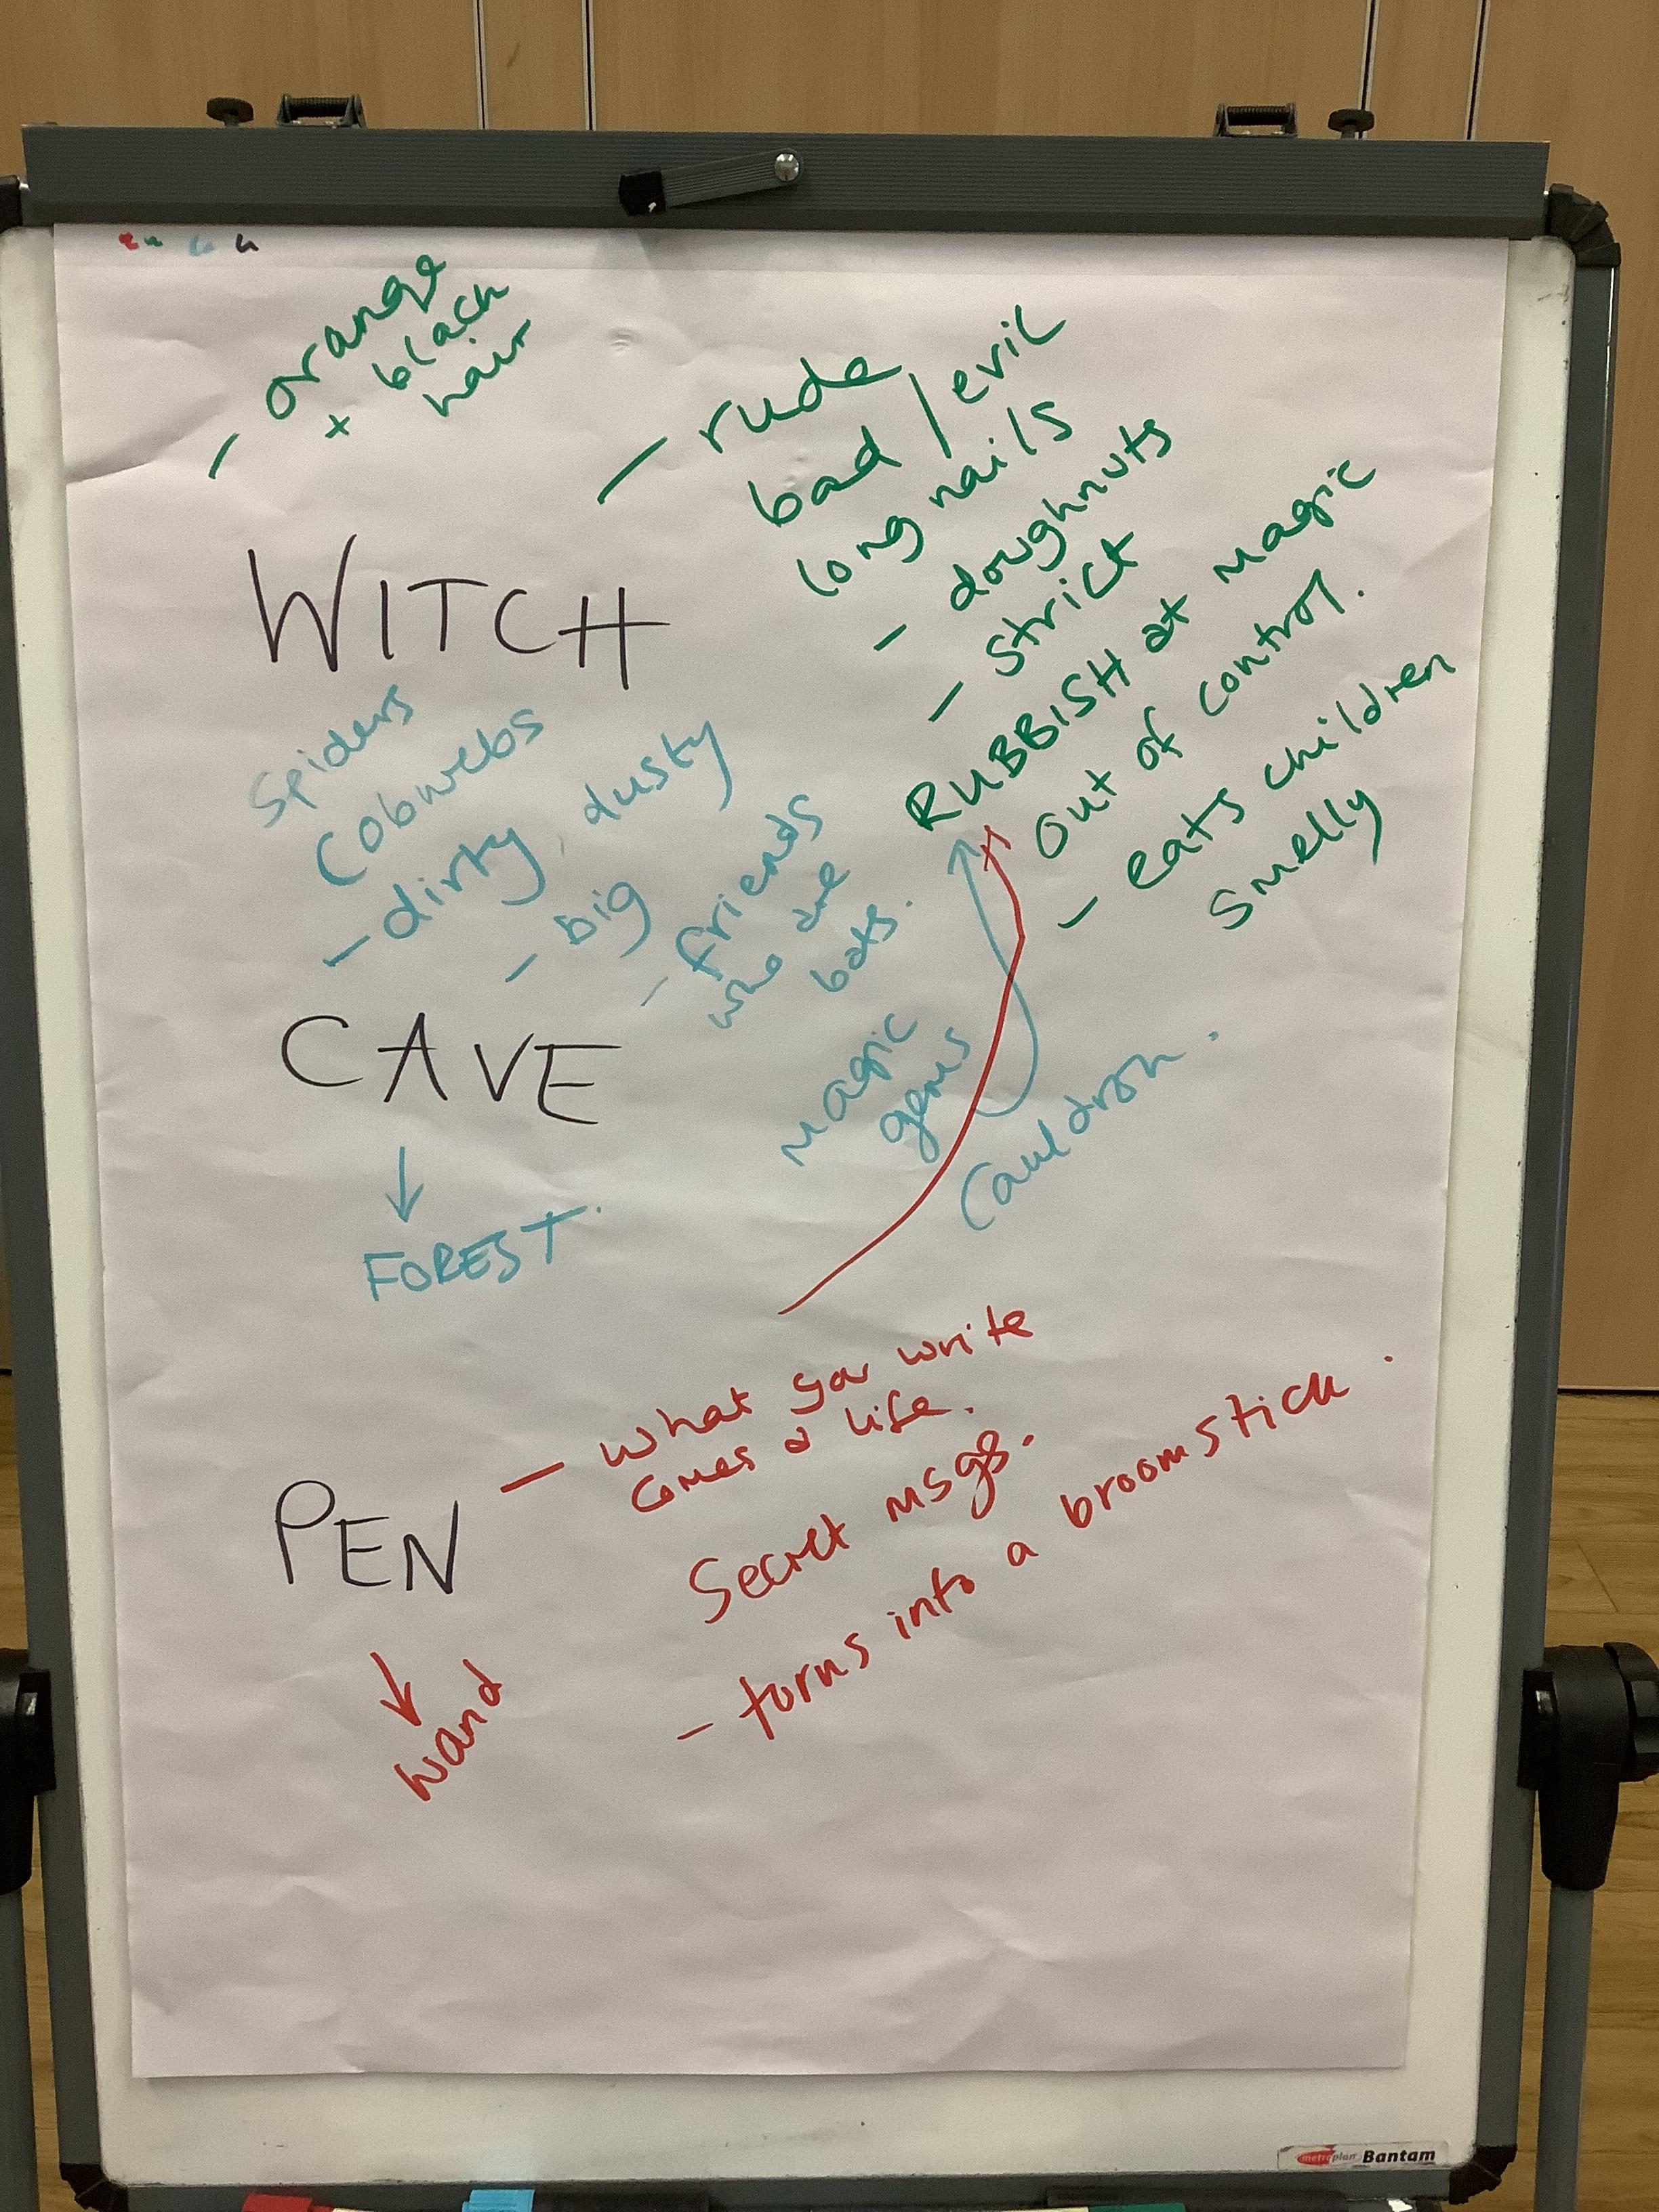 - orange
+ black
hair
- rude
bad / evil
long nails
- doughnuts
- strict
RUBBISH at magic
out of control.
- eats children
smelly
WITCH
Spiders
Cobwebs
- dirty dusty
- big
- friends
who are
bats.
CAVE
magic
gems
Cauldron.
↓
FOREST.
PEN
- what you write
comes to life.
Secret msgs.
- turns into a broomstick.
↓
wand
metroplan Bantam